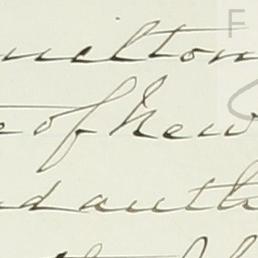 milton
of New
d auth